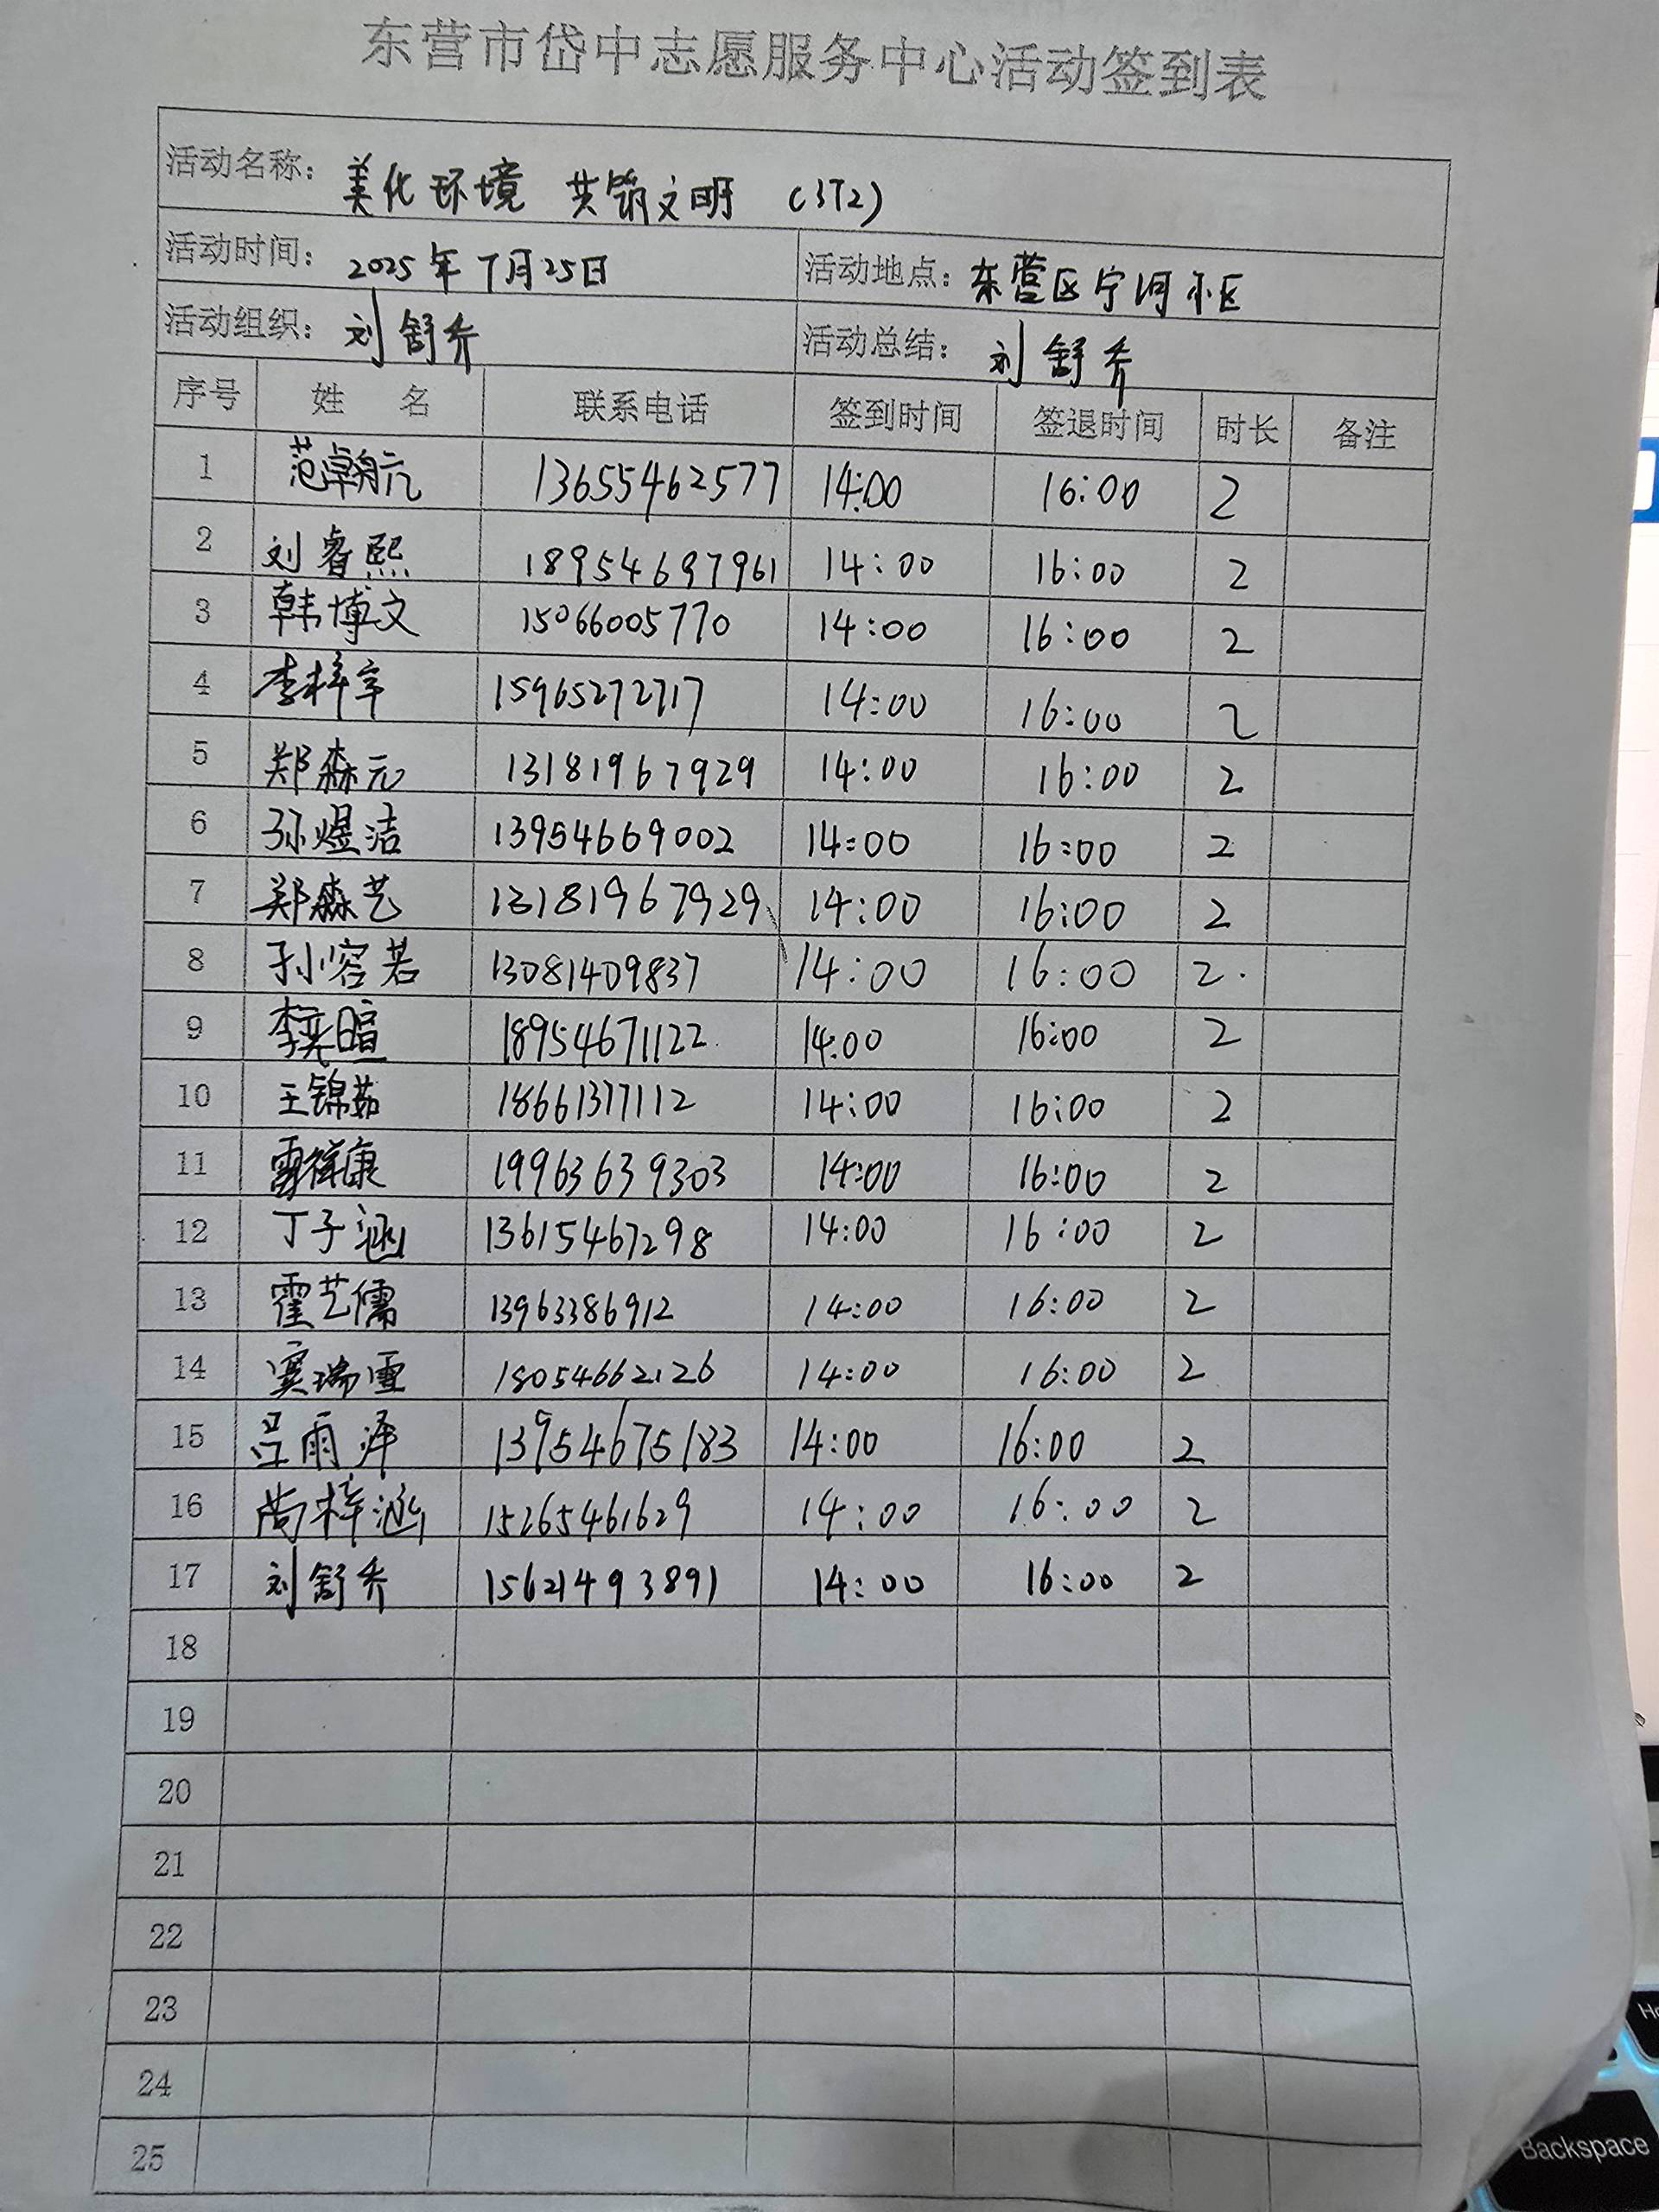 东营市岱中志愿服务中心活动签到表
活动名称: 美化环境 共筑文明 (372)
活动时间: 2025年7月25日 活动地点: 东营区宁河小区
活动组织: 刘舒乔 活动总结: 刘舒乔
序号 姓 名 联系电话 签到时间 签退时间 时长 备注
1 范卓翰元 13655462577 14:00 16:00 2
2 刘睿熙 18954697961 14:00 16:00 2
3 韩博文 15066005770 14:00 16:00 2
4 李梓宇 15965272717 14:00 16:00 2
5 郑淼元 13181967929 14:00 16:00 2
6 孙煜洁 13954669002 14:00 16:00 2
7 郑淼艺 13181967929 14:00 16:00 2
8 孙容若 13081409837 14:00 16:00 2
9 李奕暄 18954671122 14:00 16:00 2
10 王锦茹 18661377112 14:00 16:00 2
11 雷祥康 19963639303 14:00 16:00 2
12 丁子涵 13615467298 14:00 16:00 2
13 霍艺儒 13963386912 14:00 16:00 2
14 瑞雪 18054662126 14:00 16:00 2
15 吕雨泽 13954675183 14:00 16:00 2
16 尚梓涵 15265461629 14:00 16:00 2
17 刘舒乔 15621493891 14:00 16:00 2
18
19
20
21
22
23
24
25
Backspace